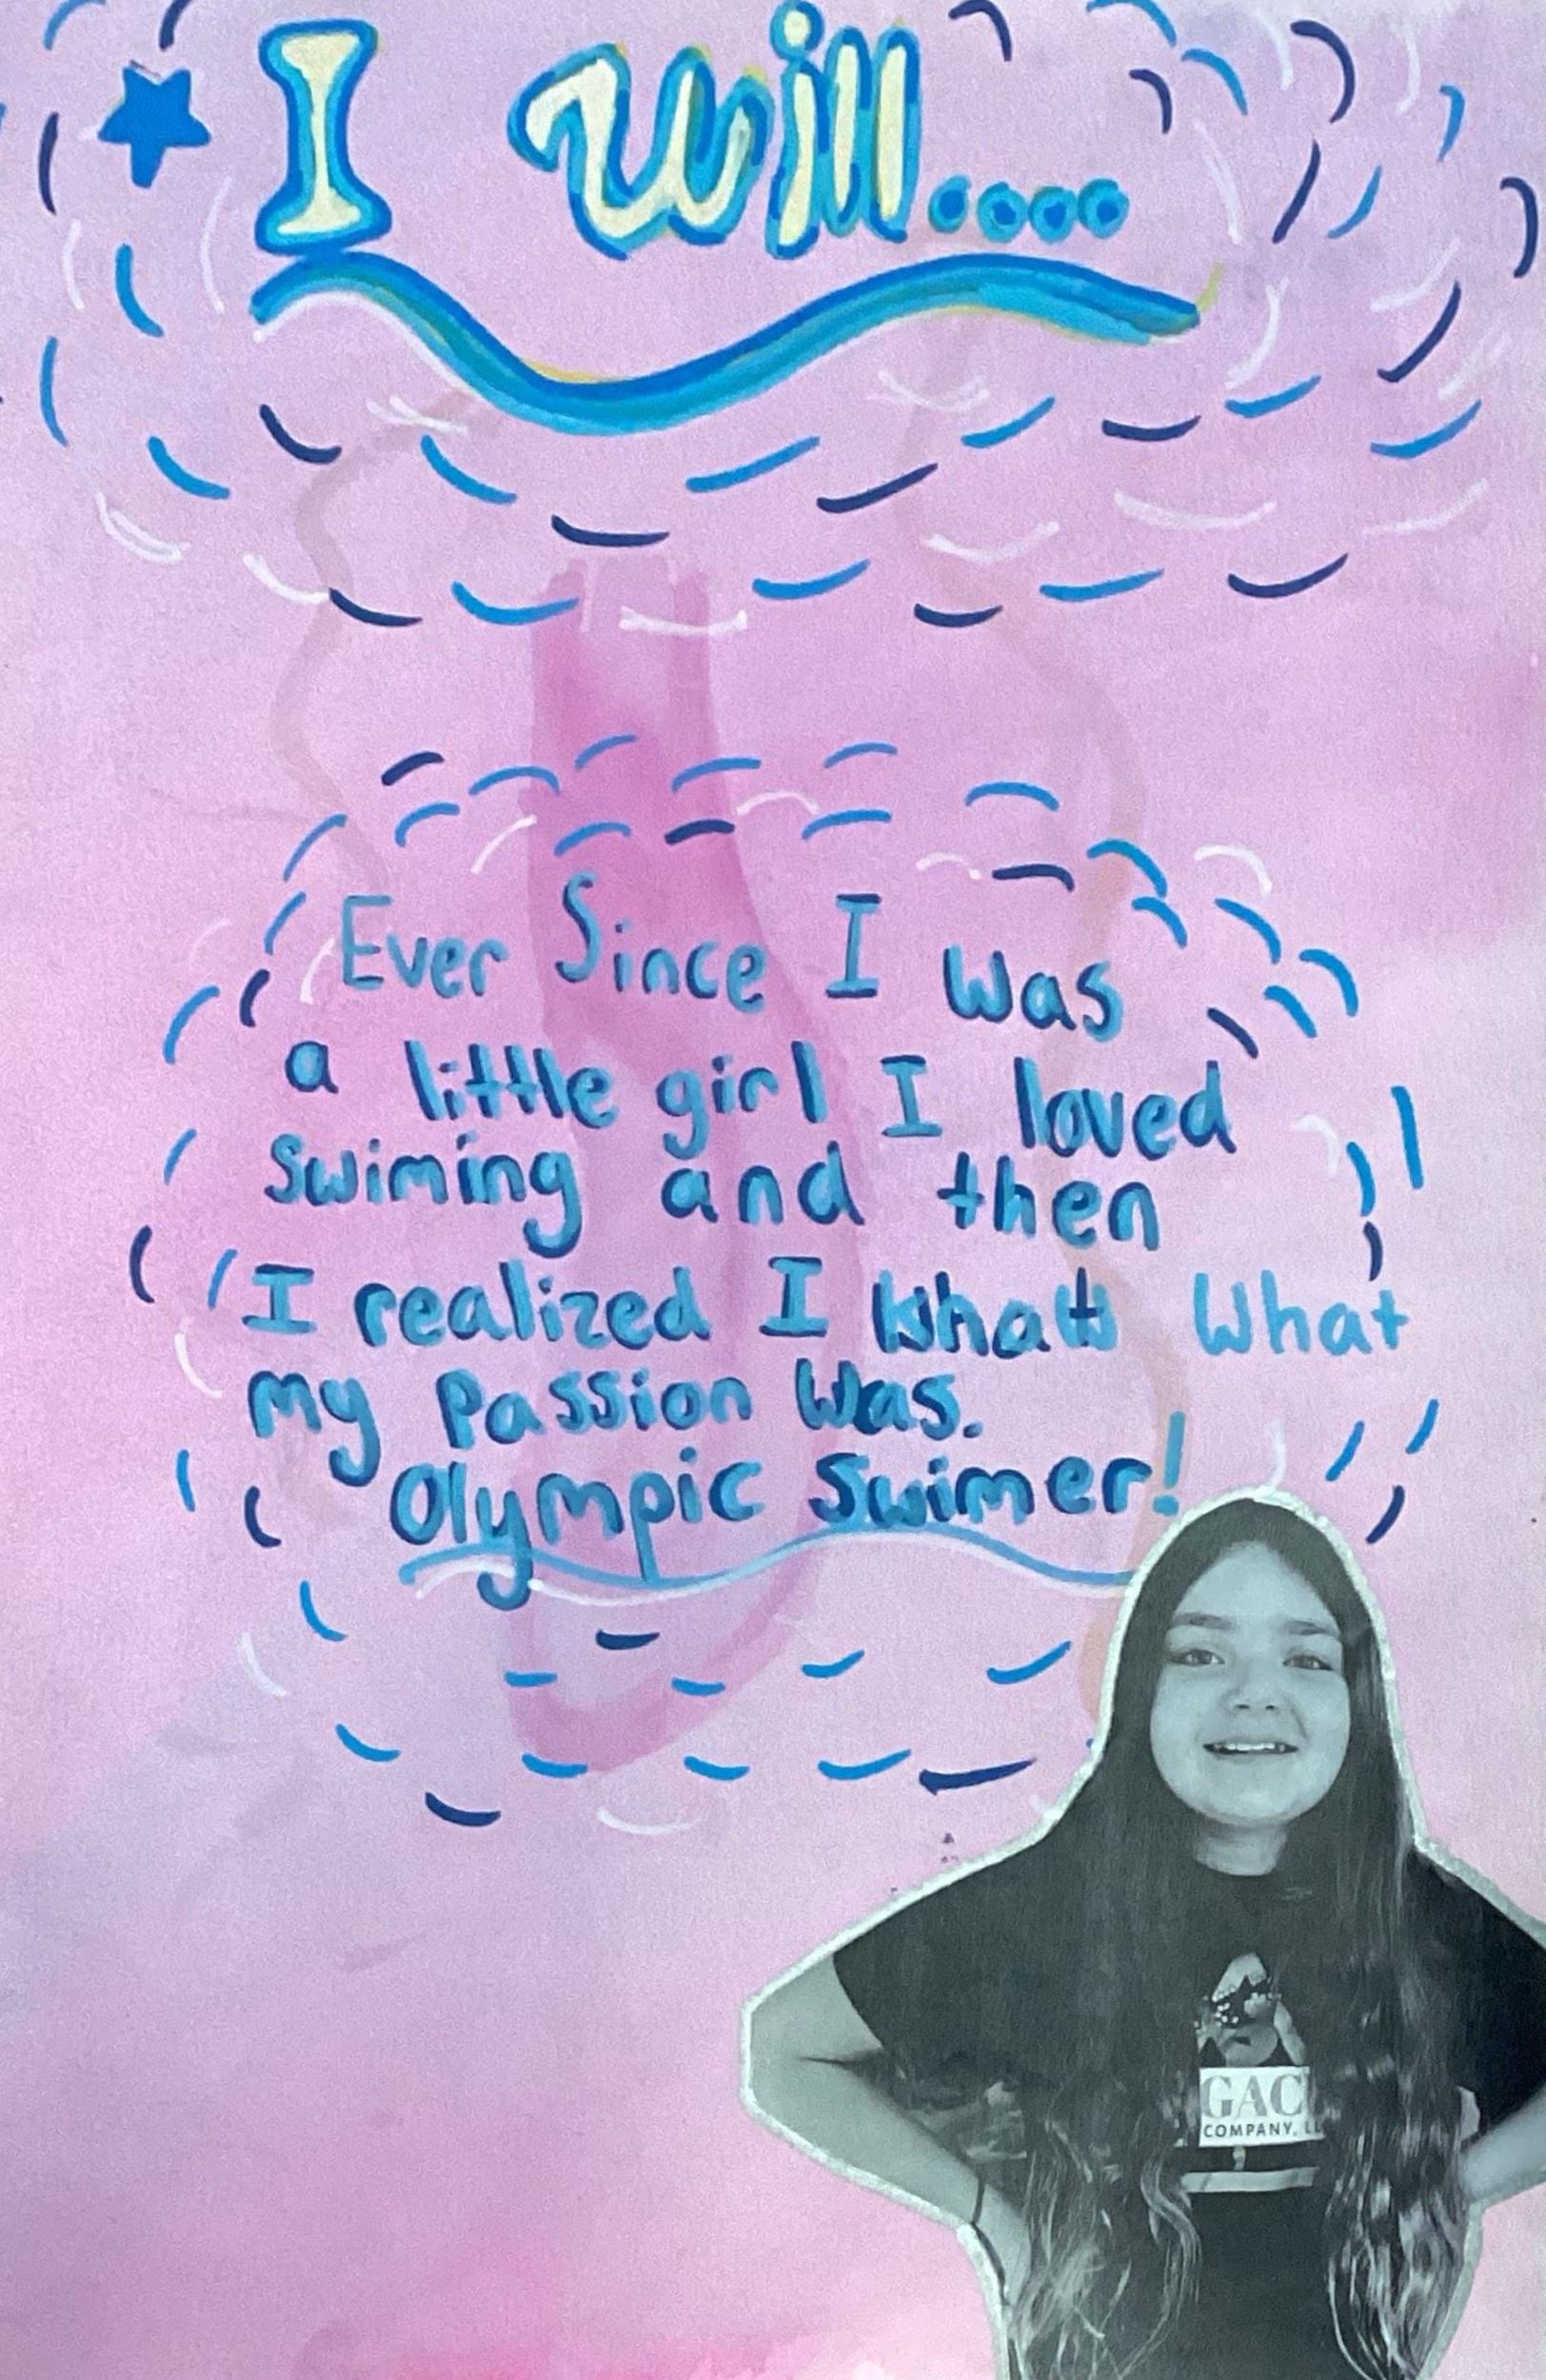 I will....
Ever Since I was
a little girl I loved
Swiming and then
I realized I What
my Passion Was.
Olympic Swimer!
GAC
COMPANY, L